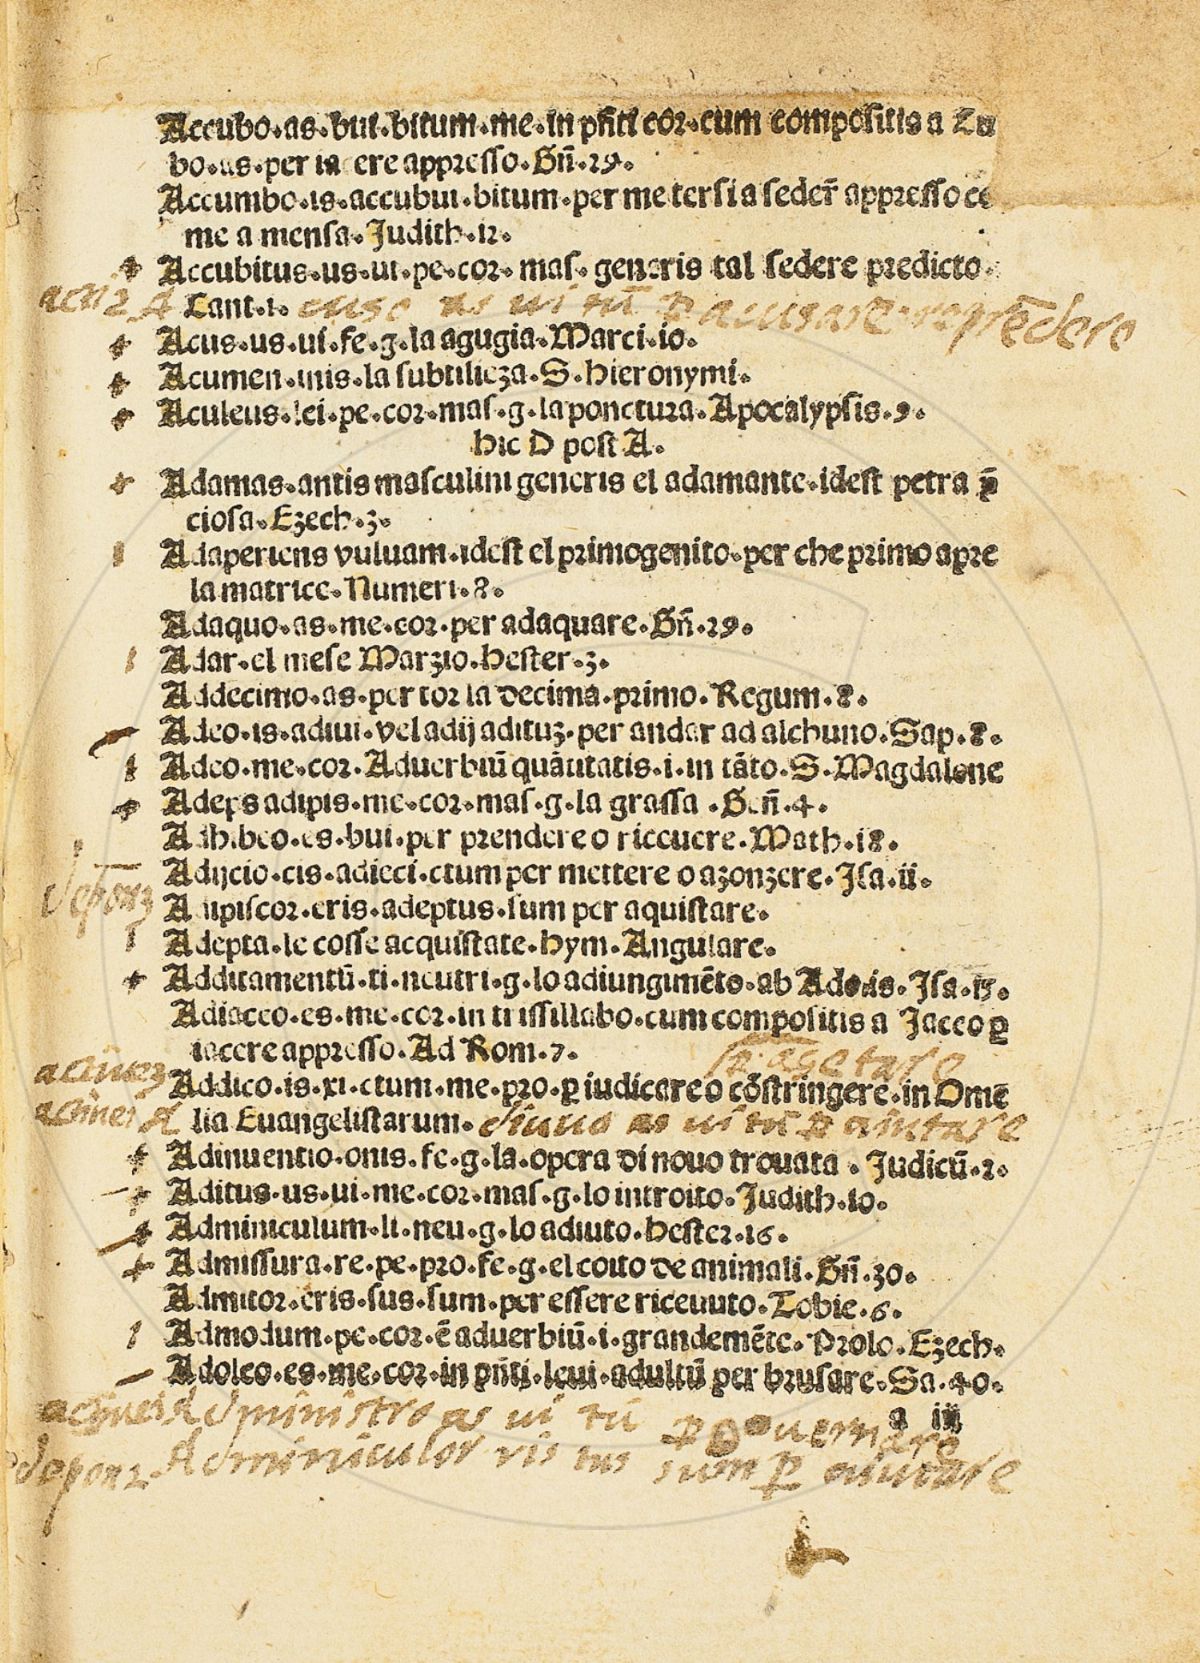 Accubo.as.bui.bitum.me.in pñti cor.cum compositis a Cu
bo.as.per iacere appresso.Gñ.29.
Accumbo.is.accubui.bitum.per metersi a seder̃ appresso co
me a mensa.Judith.12.
Accubitus.us.ui.pe.cor.mas.generis tal sedere predicto.
Cant.1. cuso as ui tũ ꝑ acusare. reprẽdere
Acus.us.ui.fe.g.la agugia.Marci.10.
Acumen.inis.la subtilieza.S.Hieronymi.
Aculeus.lei.pe.cor.mas.g.la ponctura.Apocalypsis.9.
Hic D post A.
Adamas.antis masculini generis el adamante.idest petra p̃
ciosa.Ezech.3.
Adaperiens vuluam.idest el primogenito.per che primo apre
la matrice.Numeri.8.
Adaquo.as.me.cor.per adaquare.Gñ.29.
Adar.el mese Marzio.Hester.3.
Addecimo.as.per tor la decima.primo.Regum.8.
Adeo.is.adiui.vel adij adituz.per andar ad alchuno.Sap.8.
Adeo.me.cor.Aduerbiũ quãtitatis.i.in tãto.S.Magdalene
Adeps adipis.me.cor.mas.g.la grassa.Geñ.4.
Adhibeo.es.bui.per prendere o riceuere.Math.18.
Adijcio.cis.adieci.ctum per mettere o azonzere.Isa.ii.
deponz
Adipiscor.eris.adeptus.sum per aquistare.
Adepta.le cosse acquistate.Hym.Angulare.
Additamentũ.ti.neutri.g.lo adiungimẽto.ab Addis.Isa.15.
Adiaceo.es.me.cor.in trissillabo.cum compositis a Jaceo ꝑ
iacere appresso.Ad Rom.7.
Addico.is.xi.ctum.me.pro.ꝑ iudicare o cõstringere.in Omẽ
lia Euangelistarum. diuuo as ui tũ ꝑ aiutare
Adinuentio.onis.fe.g.la.opera di nouo trouata.Judicũ.2.
Aditus.us.ui.me.cor.mas.g.lo introito.Judith.10.
Adminiculum.li.neu.g.lo adiuto.Hester.16.
Admissura.re.pe.pro.fe.g.el coito de animali.Gñ.30.
Admitor.eris.sus.sum.per essere riceuuto.Tobie.6.
Admodum.pe.cor.ẽ aduerbiũ.i.grandemẽte.Prolo.Ezech.
Adoleo.es.me.cor.in pñti.leui.adultũ per brusare.Sa.40.
a iii
Administro as ui tũ ꝑ
deponz Adminiculor ris tus sum ꝑ aiutare